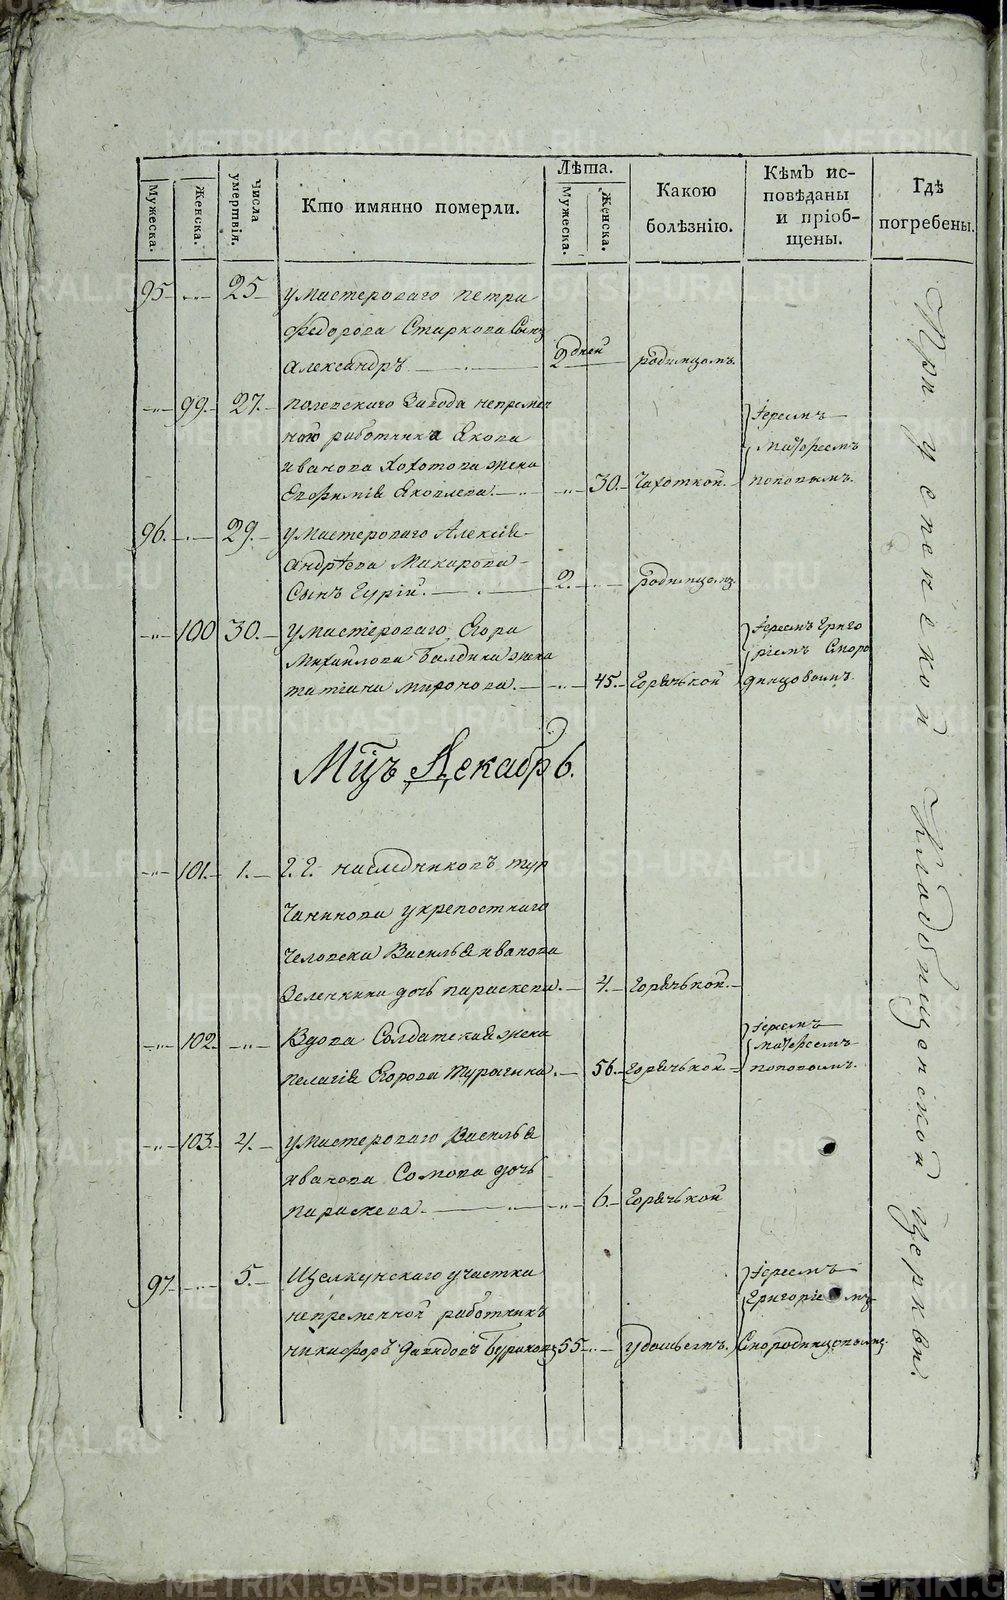 Мужеска.
Женска.
Числа умертвія.
Кто имянно померли.
Лѣта.
Мужеска.
Женска.
Какою болѣзнію.
Кѣмъ исповѣданы и пріобщены.
Гдѣ погребены.
95 — 25
у мастероваго петра
Федорова Старкова Сынъ
Александръ — 2 дней родимцомъ.
99. 27.
полевскаго Завода непремен
наго работника Якова
иванова Хохотова жена
Евфимія Яковлева. — 30. Чахоткой.
Іереемъ
Матфеемъ
поповымъ.
96. — 29.
у мастероваго Алексія
Андрѣева Макарова
Сынъ Гурій. — 2. родимцомъ
100 30.
у мастероваго Егора
Михайлова Балдина жена
татіана миронова. — 45. Горячькой
Іереемъ Григо
ріемъ Сморо
динцовымъ.
Мцъ Декабрь.
101. 1.
Г. Г. наследниковъ тур
чанинова у крепостнаго
человека Василья иванова
Зеленкина дочь параскева. — 4. Горячькой.
102.
Вдова Солдатская жена
пелагія Егорова — 56. Горячькой
Іереемъ
матфеемъ
поповымъ.
103. 4.
у мастероваго Василья
иванова Сомова дочь
параскева. — 6. Горячькой
97 — 5.
Щелкунскаго участка
непременной работникъ
никифоръ давыдовъ Бурковъ 55 удошьемъ.
Іереемъ
Григоріемъ
Смородинцовымъ.
При успенской Кладбищенской Церкви.
METRIKI.GASO-URAL.RU